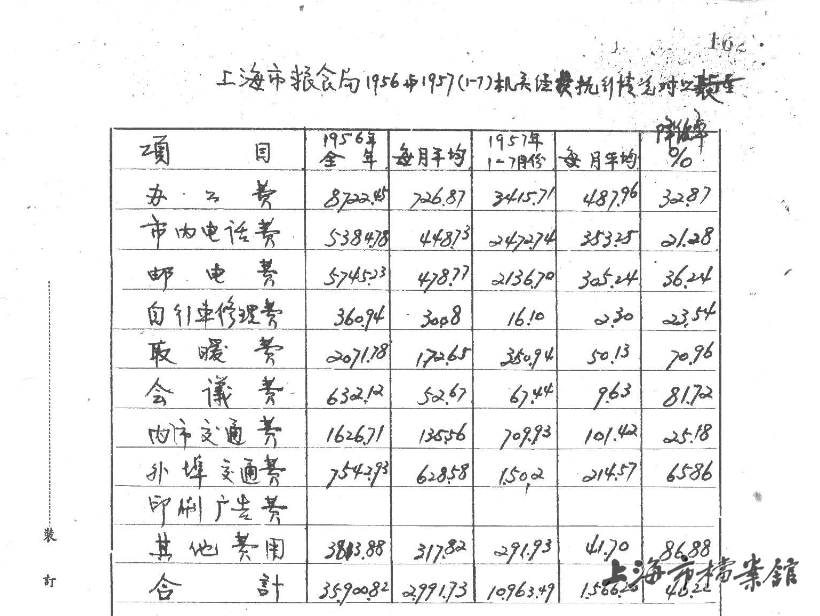 162
上海市粮食局1956与1957(1-7)机关经费执行情况对比表
項 目 1956年全年 每月平均 1957年1-7月份 每月平均 降低率%
办公費 8722.45 726.87 3415.71 487.96 32.87
市内电话費 5384.78 448.73 2472.74 353.25 21.28
邮电費 5745.23 478.77 2136.70 305.24 36.24
自行車修理費 360.94 30.08 16.10 2.30 23.54
取暖費 2071.78 172.65 350.94 50.13 70.96
会議費 632.12 52.67 67.44 9.63 81.72
内市交通費 1626.71 135.56 709.93 101.42 25.18
外埠交通費 7542.93 628.58 1.502 214.57 65.86
印刷广告費
其他費用 3813.88 317.82 291.93 41.70 86.88
合計 35900.82 2,991.73 10963.49 1,566.20
上海市檔案館
裝
訂